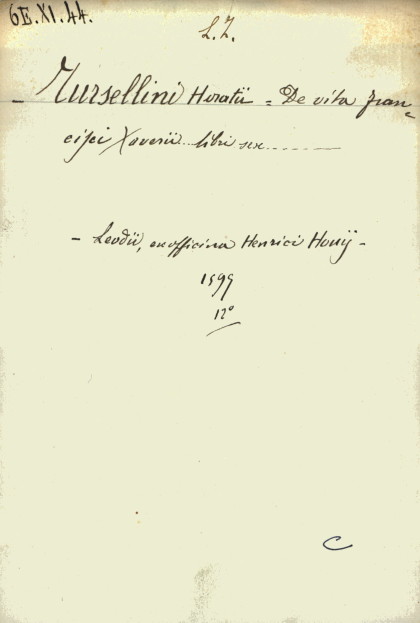 6E.XI.44.
L.Z.
- Tursellini Horatii = De vita Fran=
cisci Xaverii... libri sex..........
- Leodii, ex officina Henrici Hovij -
1599
12º
C